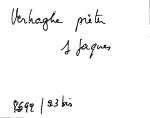 Verhaghe piéter
s Jaques
8699 / 23 bis